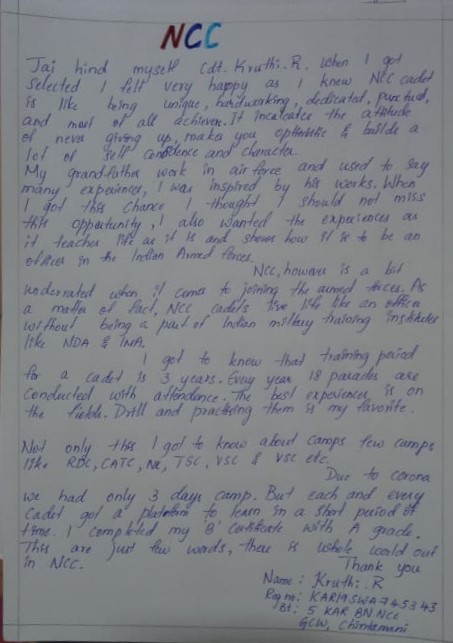 NCC
Jai hind myself Cdt. Kruthi.R. when I got
selected I felt very happy as I knew NCC cadet
is like being unique, hardworking, dedicated, punctual,
and most of all achiever. It incalcates the attitude
of never giving up, makes you optimistic & builds a
lot of self confidence and character.
My grandfather work in air force and used to say
many experiences, I was inspired by his works. When
I got this chance I thought I should not miss
this opportunity, I also wanted the experiences as
it teaches life as it is and shows how it is to be an
officer in the Indian Armed forces.
NCC, however is a bit
underrated when it comes to joining the armed forces. As
a matter of fact, NCC cadets live life like an officer
without being a part of Indian military training institutes
like NDA & INA.
I got to know that training period
for a cadet is 3 years. Every year 18 parades are
conducted with attendance. The best experience is on
the fields. Drill and practising them is my favorite.
Not only this I got to know about camps few camps
like RDC, CATC, TSC, VSC & VSC etc.
Due to corona
we had only 3 days camp. But each and every
cadet got a to learn in a short period of
time. I completed my 'B' Certificate with A grade.
This are just few words, there is whole world out
in NCC.
Thank you
Name: Kruthi.R
Reg no: KAR19SWA745343
5 KAR BN NCC
GCW, Chintamani